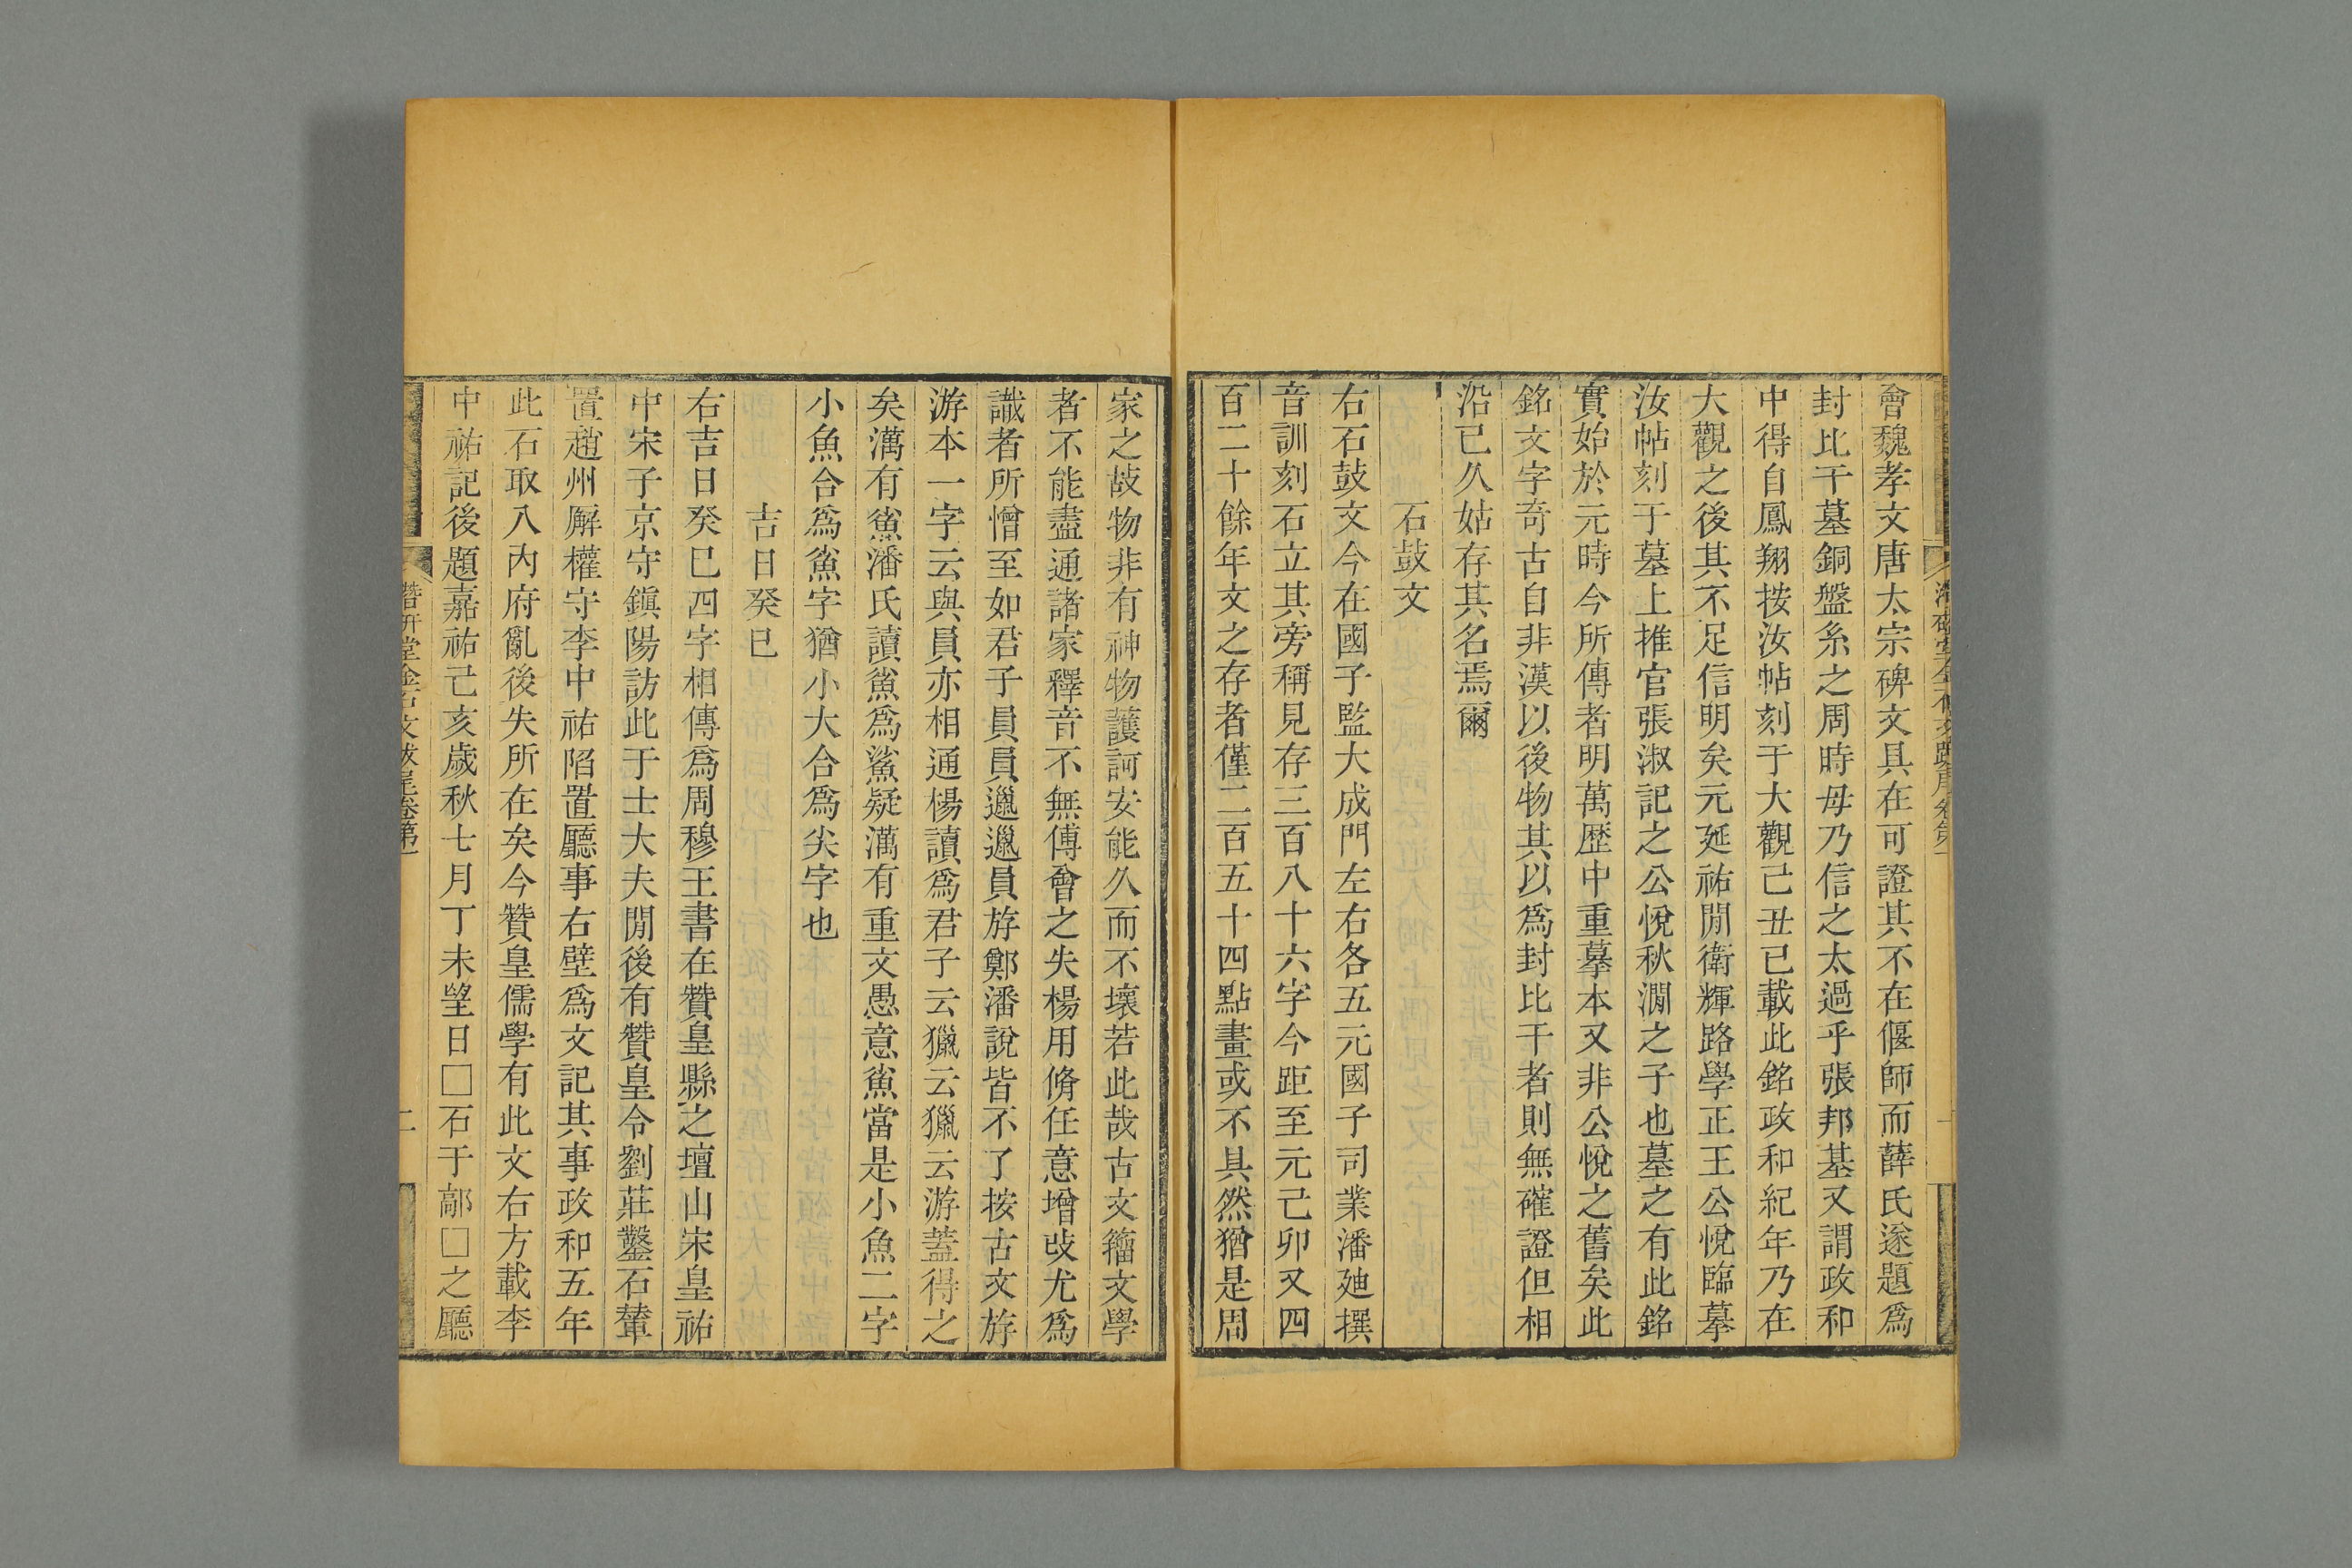 會魏孝文唐太宗碑文具在可證其不在偃師而薛氏遂題爲
封比干墓銅盤系之周時毋乃信之太過乎張邦基又謂政和
中得自鳳翔按汝帖刻于大觀己丑已載此銘政和紀年乃在
大觀之後其不足信明矣元延祐閒衛輝路學正王公悅臨摹
汝帖刻于墓上推官張淑記之公悅秋澗之子也墓之有此銘
實始於元時今所傳者明萬歷中重摹本又非公悅之舊矣此
銘文字奇古自非漢以後物其以爲封比干者則無確證但相
沿已久姑存其名焉爾
石鼓文
右石鼓文今在國子監大成門左右各五元國子司業潘廸撰
音訓刻石立其旁稱見存三百八十六字今距至元己卯又四
百二十餘年文之存者僅二百五十四點畫或不具然猶是周
家之故物非有神物護訶安能久而不壞若此哉古文籀文學
者不能盡通諸家釋音不無傅會之失楊用脩任意增改尤爲
識者所憎至如君子員員邋邋員斿鄭潘說皆不了按古文斿
游本一字云與員亦相通楊讀爲君子云獵云獵云游蓋得之
矣澫有䱡潘氏讀䱡爲鯊疑澫有重文愚意䱡當是小魚二字
小魚合爲䱡字猶小大合爲尖字也
吉日癸巳
右吉日癸巳四字相傳爲周穆王書在贊皇縣之壇山宋皇祐
中宋子京守鎭陽訪此于士大夫閒後有贊皇令劉莊鑿石輦
置趙州廨權守李中祐陷置廳事右壁爲文記其事政和五年
此石取入內府亂後失所在矣今贊皇儒學有此文右方載李
中祐記後題嘉祐己亥歲秋七月丁未朢日□石于鄗□之廳
潛研堂金石文跋尾卷第一
二